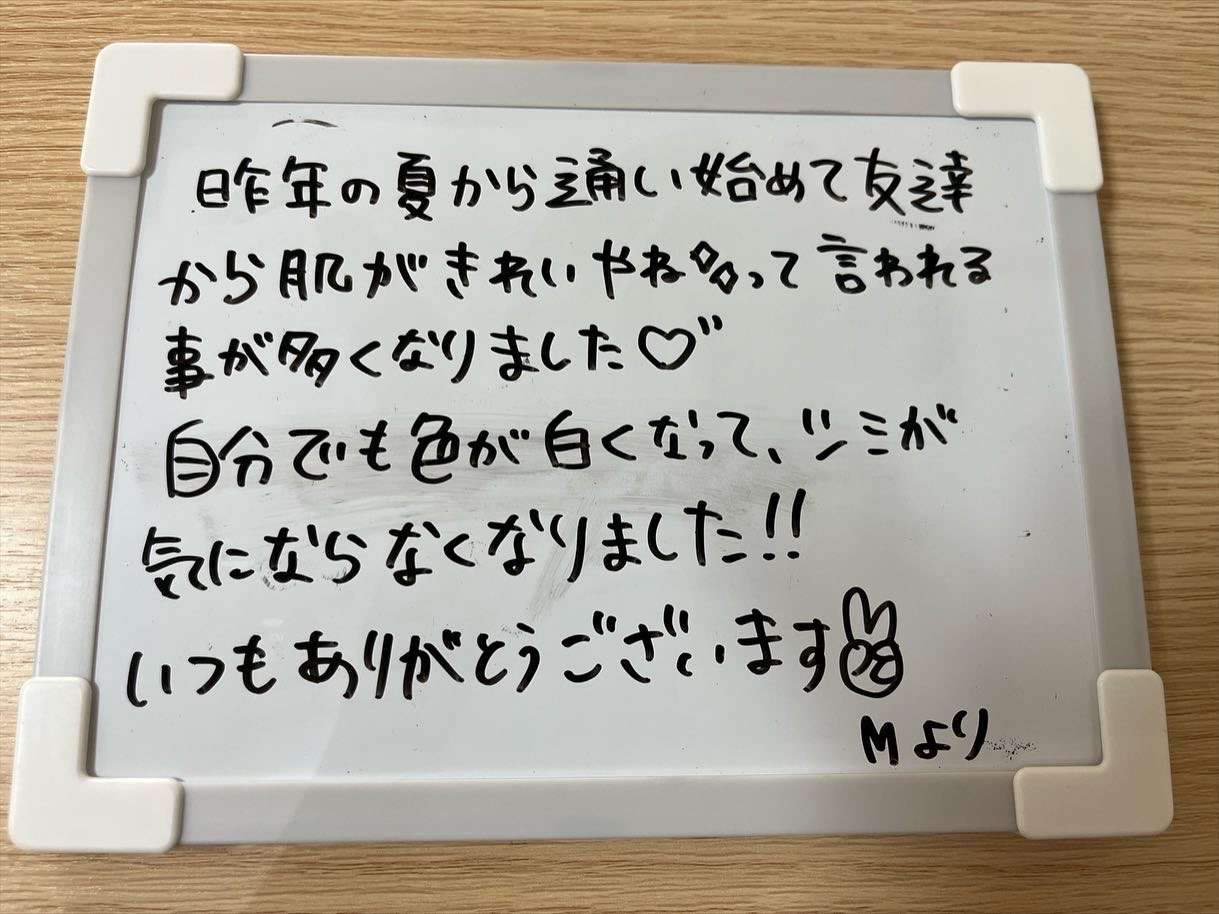 昨年の夏から通い始めて友達
から肌がきれいやねって言われる
事が多くなりました♡
自分でも色が白くなって、シミが
気にならなくなりました!!
いつもありがとうございます
Mより